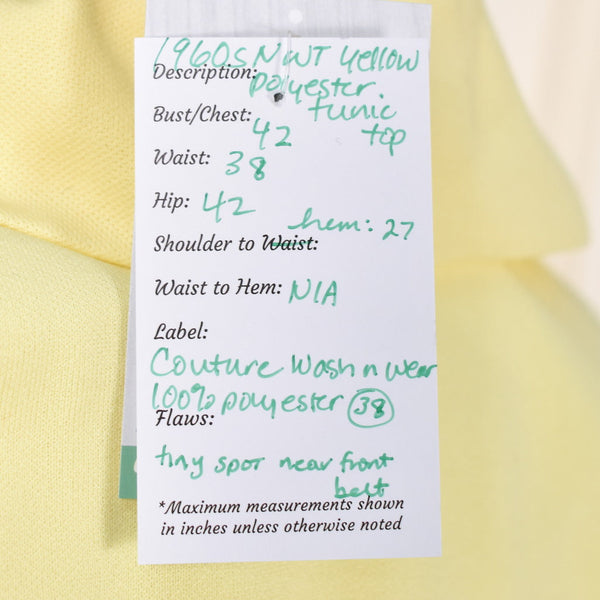 1960s NWT yellow
Description: polyester.
tunic
Bust/Chest: 42 top
Waist: 38
Hip: 42
hem: 27
Shoulder to Waist:
Waist to Hem: N/A
Label:
Couture Wash n wear
100% polyester 38
Flaws:
tiny spot near front
belt
*Maximum measurements shown
in inches unless otherwise noted